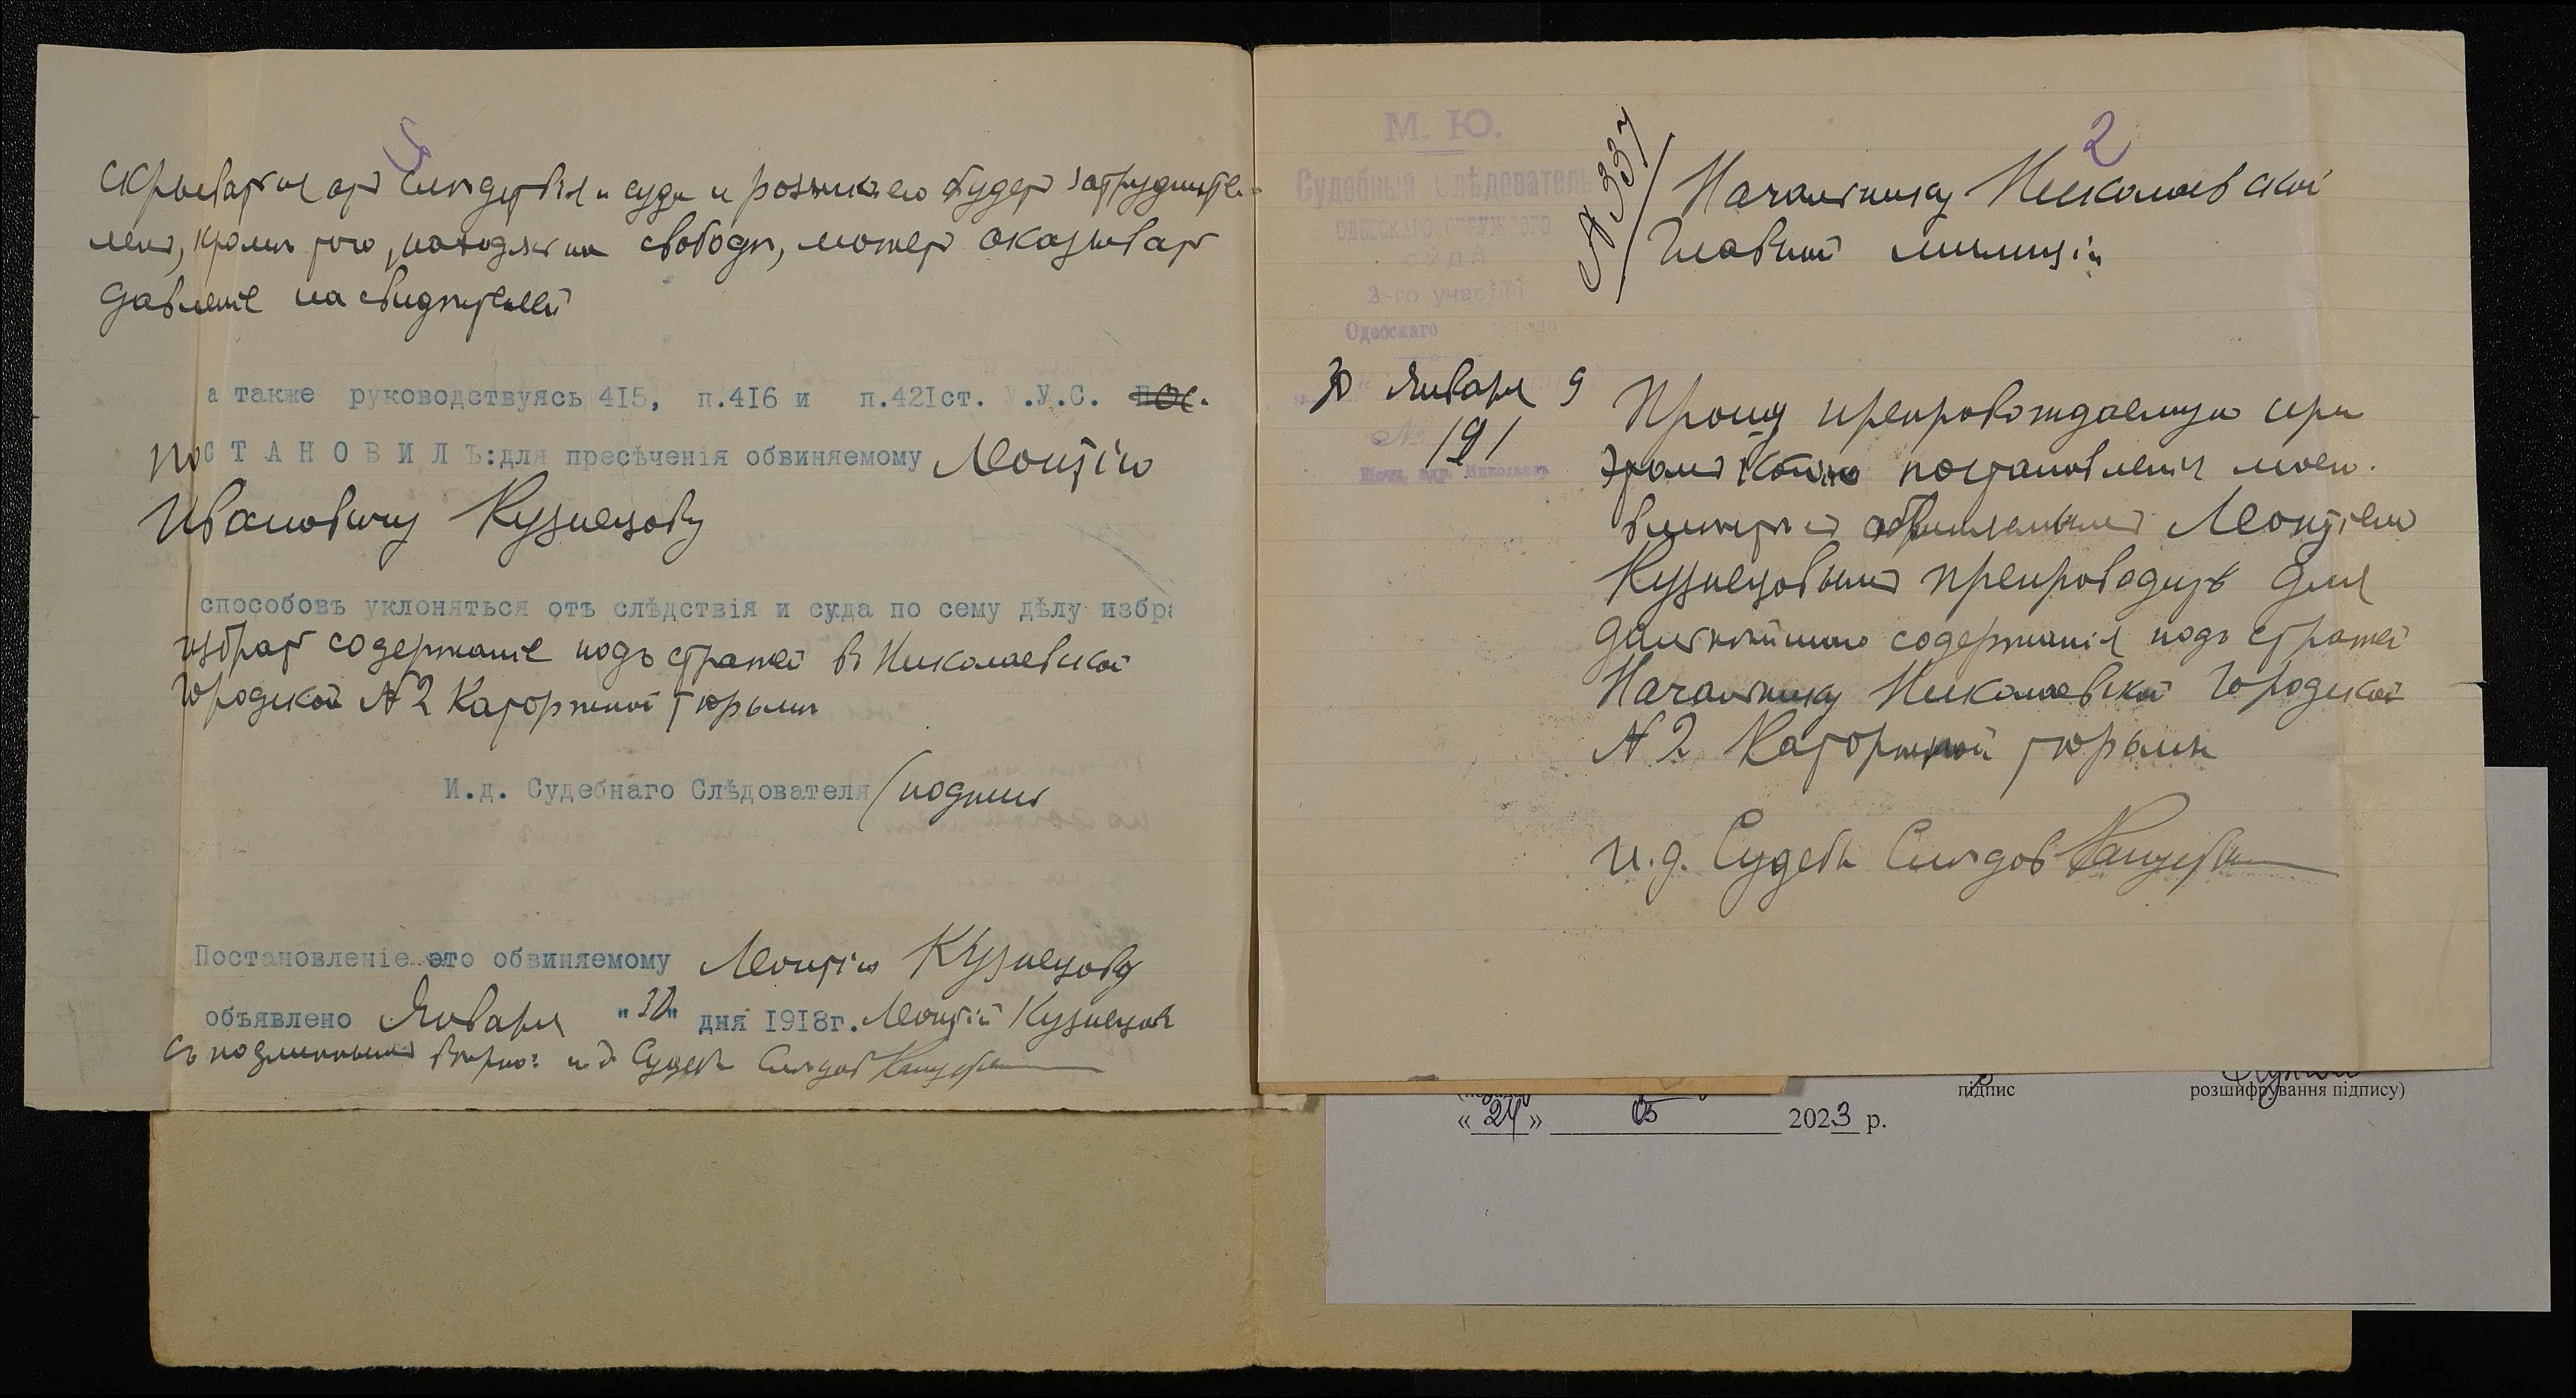 скрываться отъ слѣдствія и суда и розыскъ его будетъ затрудните-
ленъ, кромѣ того, находясь на свободѣ, можетъ оказывать
давленіе на свидѣтелей
а также руководствуясь 415, п.416 и п.421ст. У.У.С. пос.
по С Т А Н О В И Л Ъ:для пресѣченія обвиняемому Леонтію
Ивановичу Кузнецову
способовъ уклоняться отъ слѣдствія и суда по сему дѣлу избра
избрать содержаніе подъ стражей въ Николаевской
Городской №2 Каторжной тюрьмѣ
И.д. Судебнаго Слѣдователя (подпись
Постановленіе это обвиняемому Леонтію Кузнецову
объявлено Января "30" дня 1918г. Леонтій Кузнецовъ
Съ подлиннымъ вѣрно: и д Судебн Слѣдов
2
М. Ю.
Судебный Слѣдователь
одесскаго окружного
СУДА
3-го участка
Одесскаго
30 Января 9
№ 191
№ 337
Начальнику Николаевской
Главной милиціи
Прошу препровождаемую при
этомъ копію постановленія моего
вмѣстѣ съ обвиняемымъ Леонтіемъ
Кузнецовымъ препроводить для
дальнѣйшаго содержанія подъ стражей
Начальнику Николаевской Городской
№2 Каторжной тюрьмы
И.д. Судебн Слѣдов
підпис
розшифрування підпису)
«24» 05 2023 р.